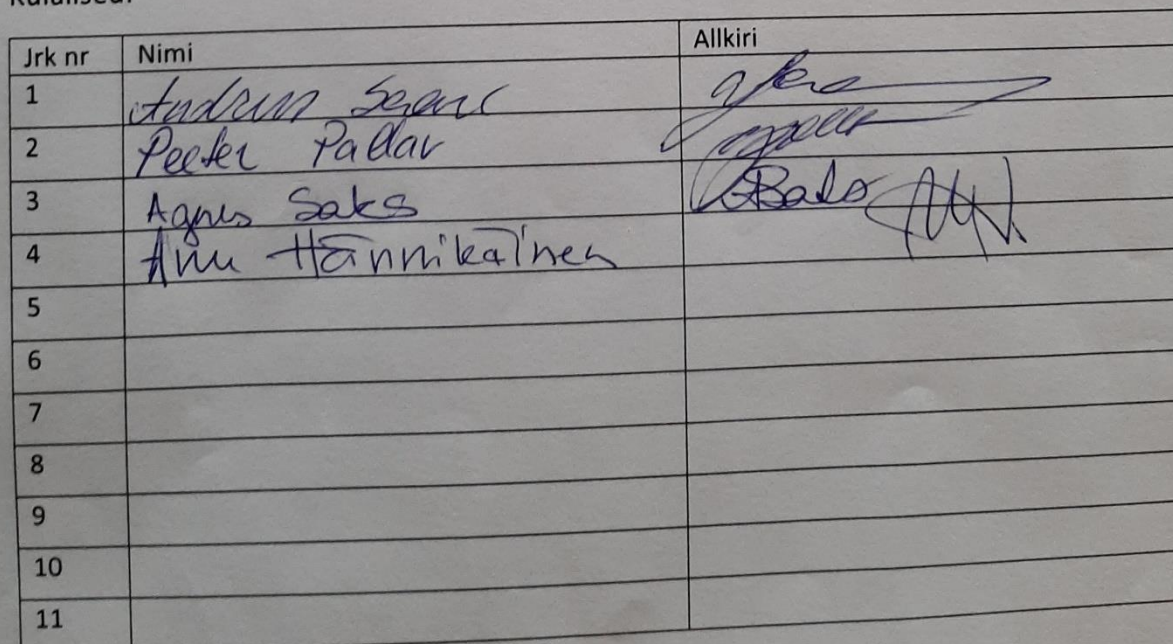 Jrk nr Nimi Allkiri
1 Andrus
2 Peeter Padar
3 Agnes Saks
4 Anu Hännikäinen
5
6
7
8
9
10
11